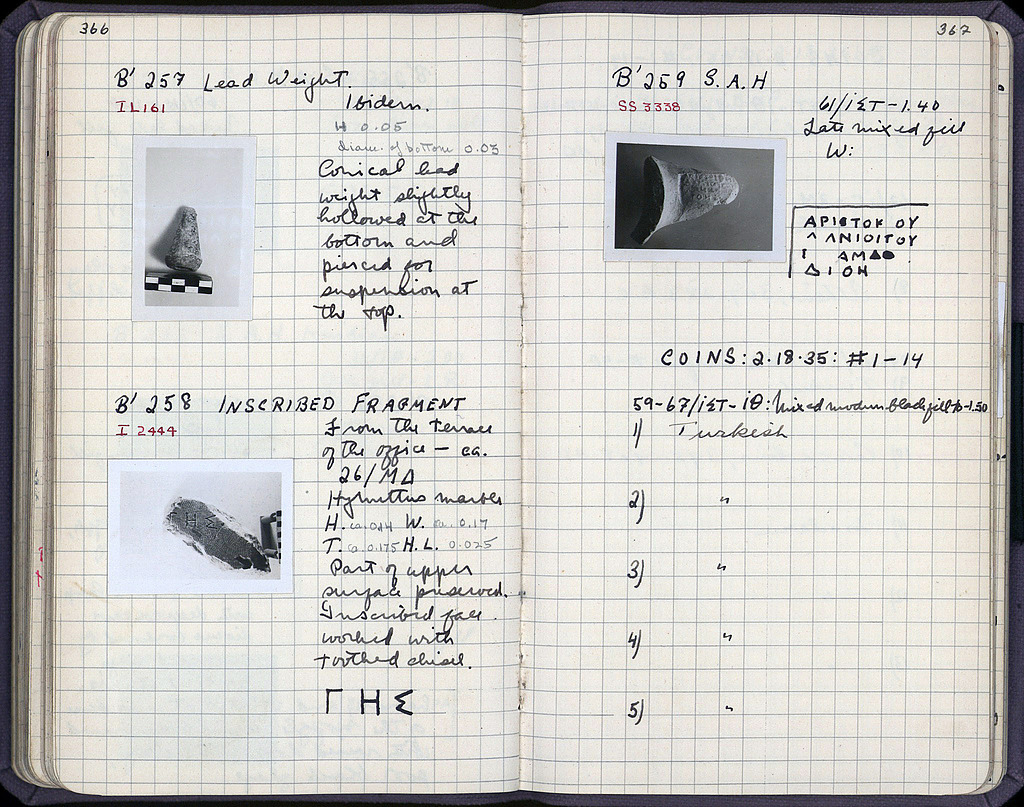 366
B' 257 Lead Weight.
IL161
Ibidem.
H 0.05
diam. of bottom 0.03
Conical lead
weight slightly
hollowed at the
bottom and
pierced for
suspension at
the top.
B' 258 INSCRIBED FRAGMENT
I 2444
From the terrace
of the office – ca.
26/ΜΔ
Hymettus marble
H. ca. 0.14 W. ca. 0.17
T. ca. 0.175 H. L. 0.025
Part of upper
surface preserved.
Inscribed face
worked with
toothed chisel.
ΓΗΣ
367
B' 259 S.A.H
SS 3338
61/ΙΣΤ – 1.40
Late mixed fill
W:
ΑΡΙΣΤΟΚ ΟΥ
ΔΙΟΗ
COINS: 2·18·35: #1–14
59–67/ΙΣΤ–ΙΘ: Mixed modern black fill to -1.50
1) Turkish
2) "
3) "
4) "
5) "